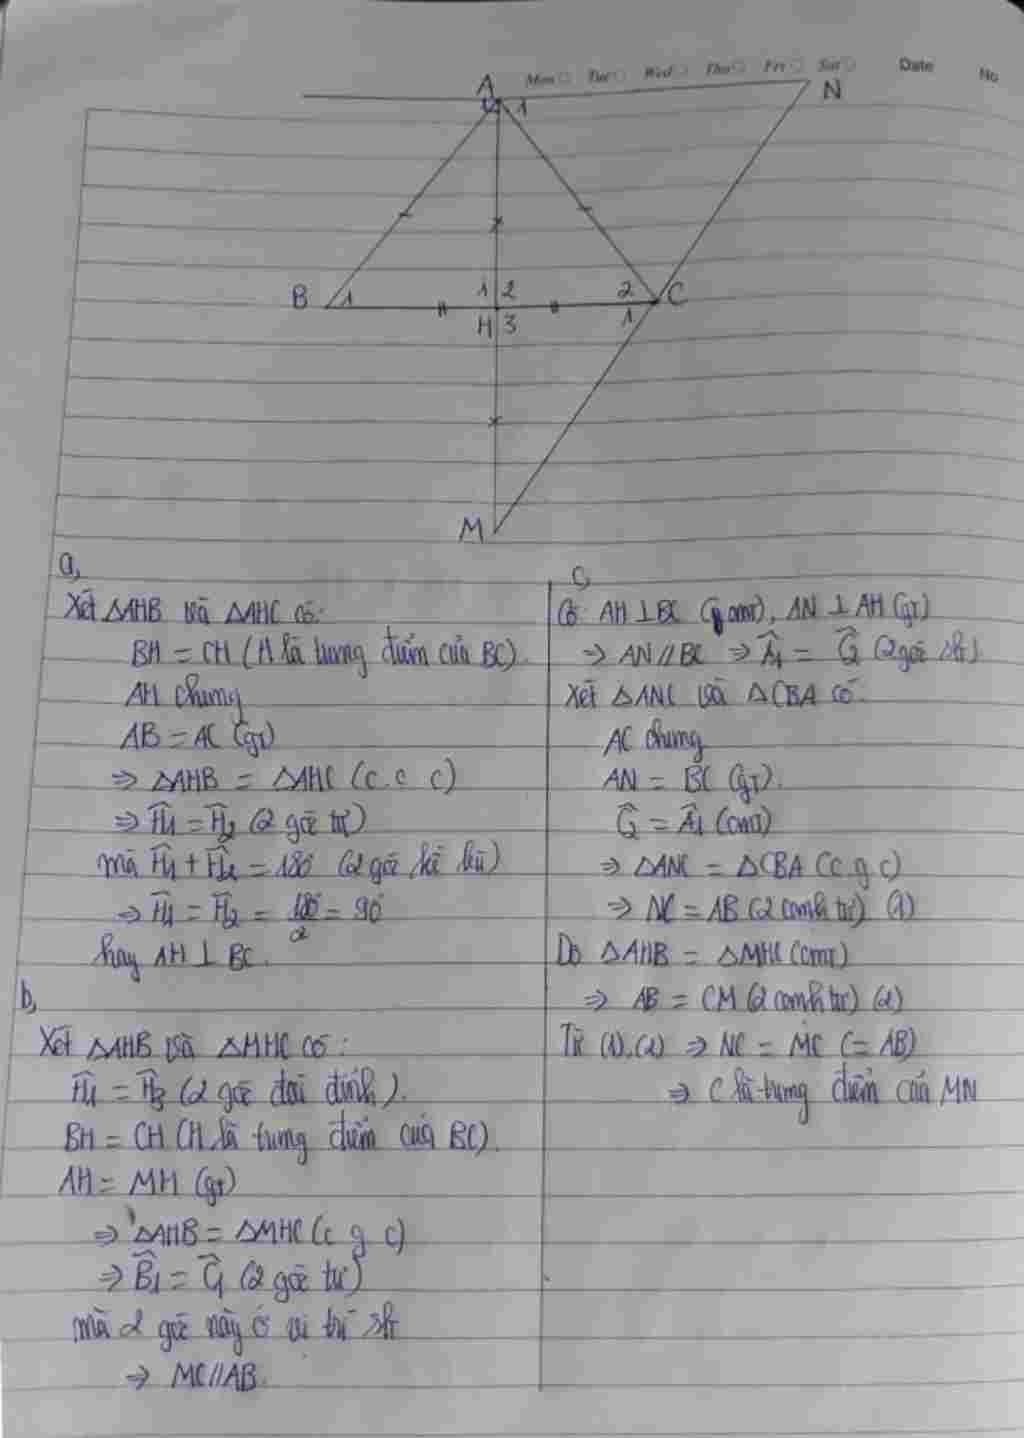 Mon Tue Wed Thu Fri Sat Date No
A 1 N
B 1 1 2 2 C
H 3 1
M
a,
Xét △AHB và △AHC có:
BH = CH (H là trung điểm của BC)
AH chung
AB = AC (gt)
⇒ △AHB = △AHC (c.c.c)
⇒ Ĥ1 = Ĥ2 (2 góc tư)
mà Ĥ1 + Ĥ2 = 180° (2 góc kề bù)
⇒ Ĥ1 = Ĥ2 = 180°/2 = 90°
hay AH ⊥ BC.
b,
Xét △AHB và △MHC có:
Ĥ1 = Ĥ3 (2 góc đối đỉnh).
BH = CH (H là trung điểm của BC).
AH = MH (gt)
⇒ △AHB = △MHC (c g c)
⇒ B̂1 = Ĉ1 (2 góc tư)
mà 2 góc này ở vị trí slt
⇒ MC//AB.
c,
Có AH ⊥ BC (cmt), AN ⊥ AH (gt)
⇒ AN // BC ⇒ Â1 = Ĉ2 (2 góc slt).
Xét △ANC và △CBA có:
AC chung
AN = BC (gt).
Ĉ2 = Â1 (cmt)
⇒ △ANC = △CBA (c.g.c)
⇒ NC = AB (2 cạnh tư) (1)
Do △AHB = △MHC (cmt)
⇒ AB = CM (2 cạnh tư) (2)
Từ (1), (2) ⇒ NC = MC (= AB)
⇒ C là trung điểm của MN